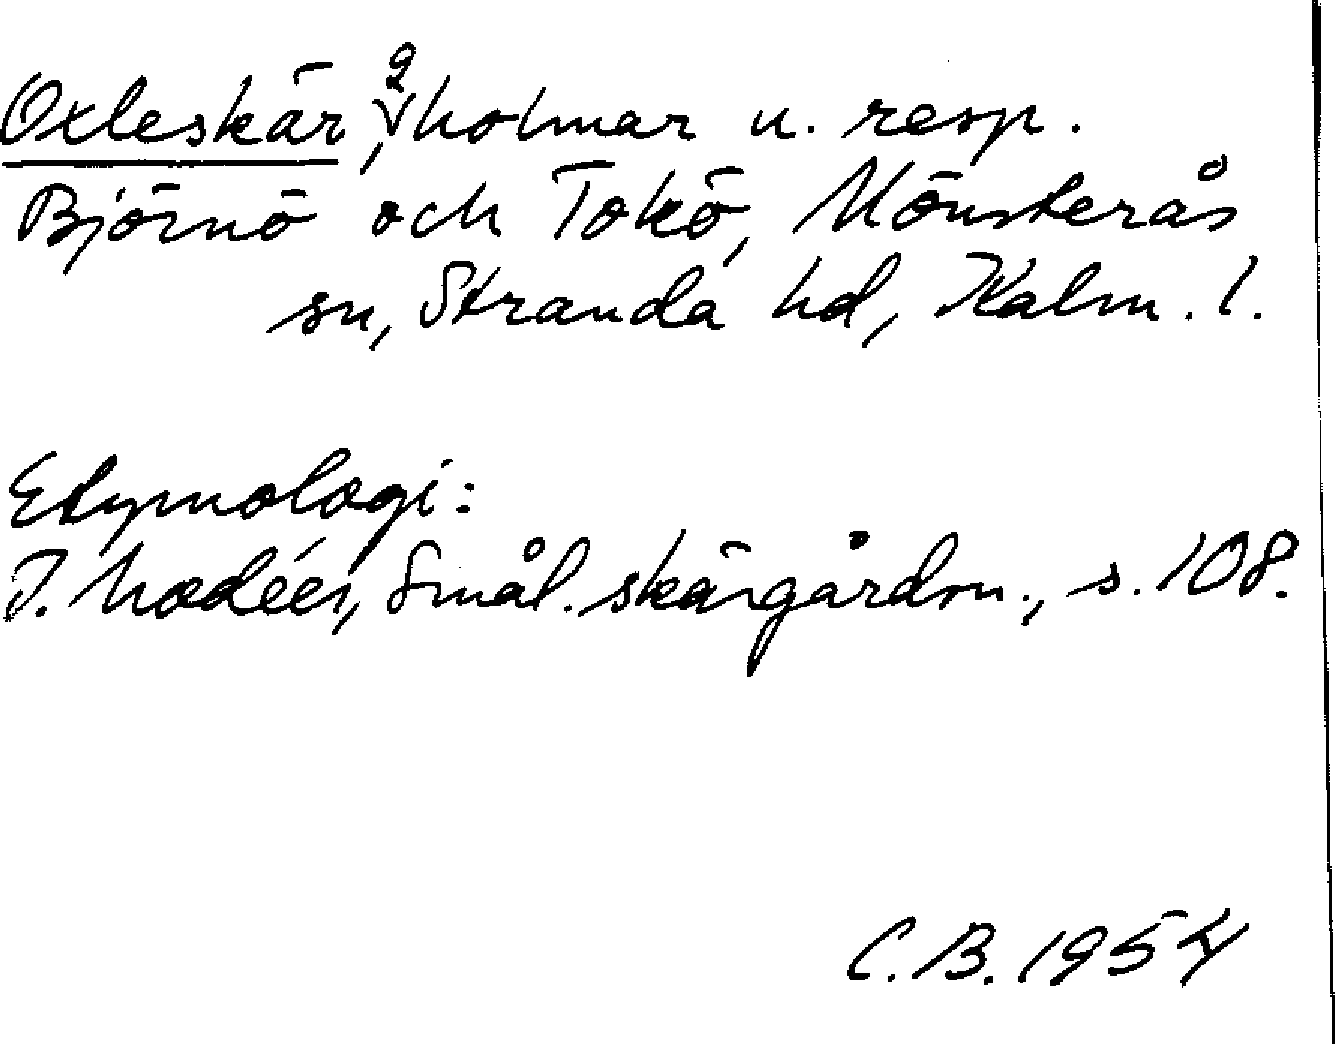 Oxleskär, 2 holmar n. resp.
Björnö och Tokö, Mönsterås
sn, Stranda hd, Kalm. l.
Etymologi:
I. Modéer, Smål. skärgårdsn., s. 108.
C. B. 1954